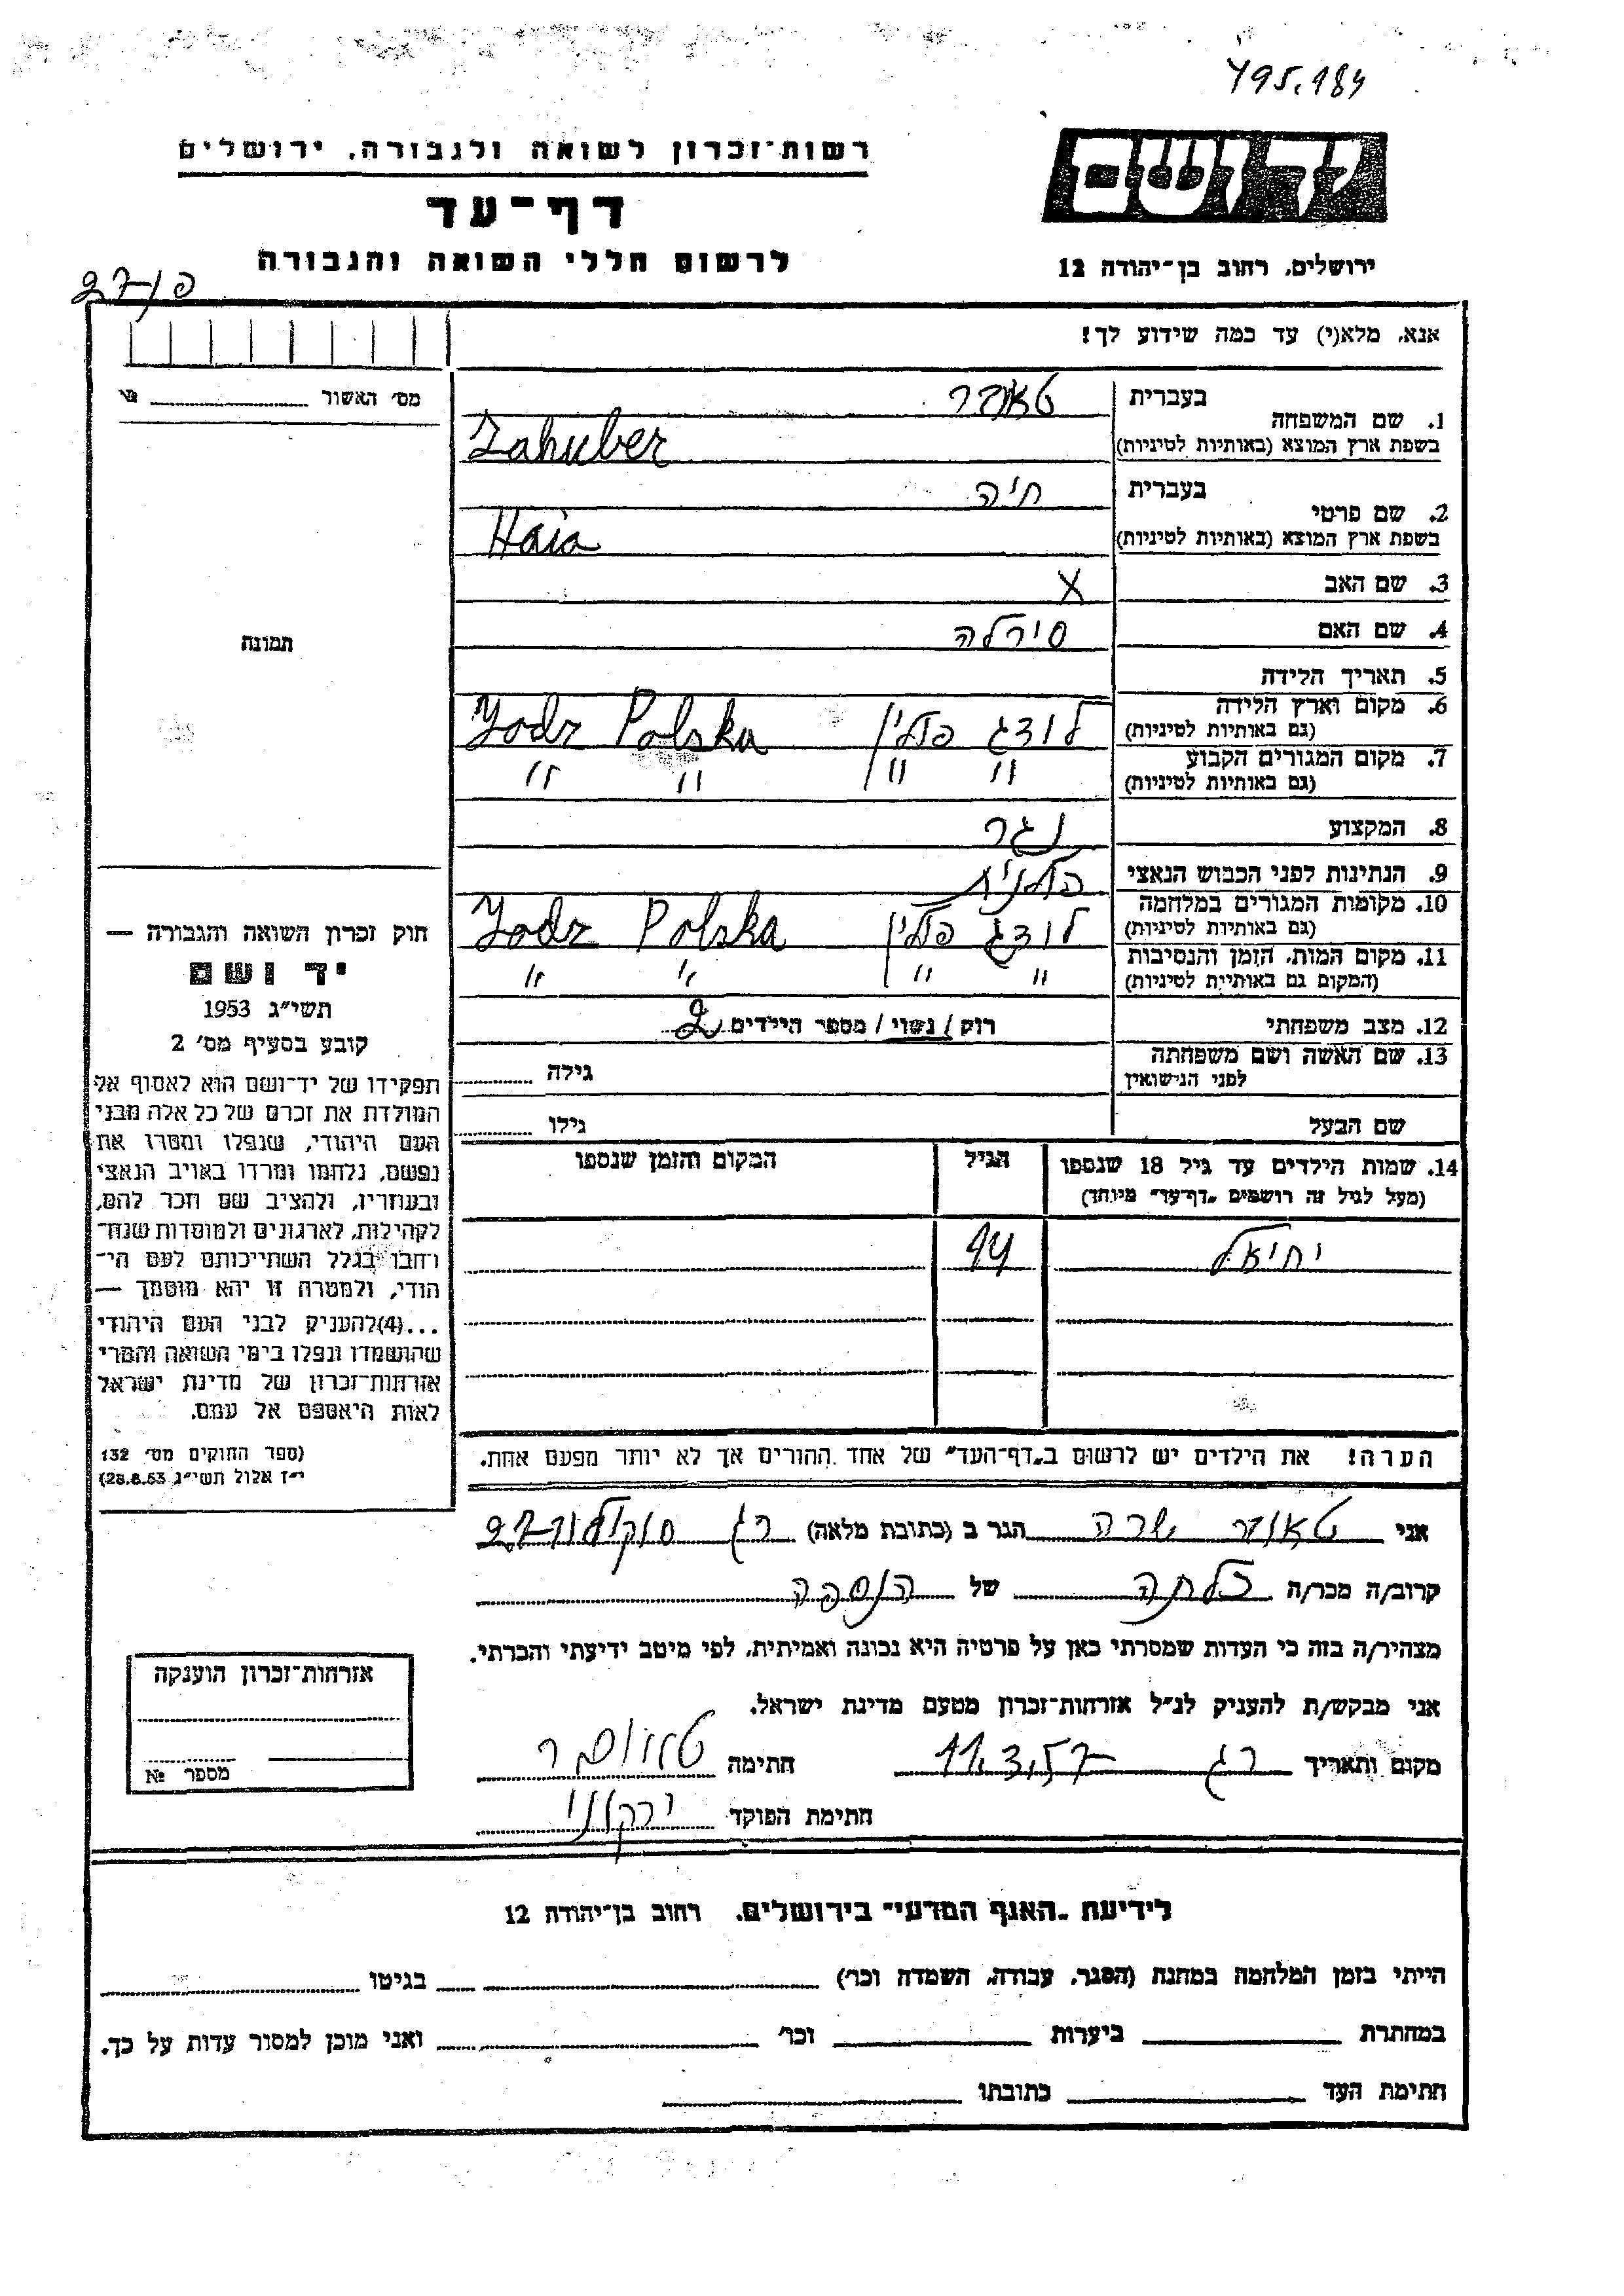 495.184
רשות־זכרון לשואה ולגבורה, ירושלים
דף־עד
לרשום חללי השואה והגבורה
ירושלים, רחוב בן־יהודה 12
אנא, מלא(י) עד כמה שידוע לך!
מס׳ האשור №
1. שם המשפחה
בעברית
בשפת ארץ המוצא (באותיות לטיניות)
2. שם פרטי
בעברית חיה
בשפת ארץ המוצא (באותיות לטיניות) Haia
3. שם האב X
4. שם האם סירלה
5. תאריך הלידה
6. מקום וארץ הלידה
(גם באותיות לטיניות) לודג פולין Lodz Polska
7. מקום המגורים הקבוע
(גם באותיות לטיניות) " " " "
8. המקצוע נגר
9. הנתינות לפני הכבוש הנאצי פולנית
10. מקומות המגורים במלחמה
(גם באותיות לטיניות) לודג פולין Lodz Polska
11. מקום המות, הזמן והנסיבות
(המקום גם באותיות לטיניות) " " " "
12. מצב משפחתי רוק / נשוי / מספר הילדים 2
13. שם האשה ושם משפחתה
לפני הנישואין גילה
שם הבעל גילו
14. שמות הילדים עד גיל 18 שנספו הגיל המקום והזמן שנספו
(מעל לגיל זה רושמים „דף־עד״ מיוחד)
יחיאל 14
הערה! את הילדים יש לרשום ב„דף־העד״ של אחד ההורים אך לא יותר מפעם אחת.
תמונת
חוק זכרון השואה והגבורה —
יד ושם
תשי״ג 1953
קובע בסעיף מס׳ 2
תפקידו של יד־ושם הוא לאסוף אל
המולדת את זכרם של כל אלה מבני
העם היהודי, שנפלו ומסרו את
נפשם, נלחמו ומרדו באויב הנאצי
ובעוזריו, ולהציב שם וזכר להם,
לקהילות, לארגונים ולמוסדות שנח־
רחבו בגלל השתייכותם לעם הי־
הודי, ולמטרה זו יהא מוסמך —
...(4)להעניק לבני העם היהודי
שהושמדו ונפלו בימי השואה והמרי
אזרחות־זכרון של מדינת ישראל
לאות היאספם אל עמם.
(ספר החוקים מס׳ 132
י״ז אלול תשי״ג 28.8.53)
אני שרה הגר ב (כתובת מלאה) רג
קרוב/ה מכר/ה של הנספה
מצהיר/ה בזה כי העדות שמסרתי כאן על פרטיה היא נכונה ואמיתית, לפי מיטב ידיעתי והכרתי.
אני מבקש/ת להעניק לנ״ל אזרחות־זכרון מטעם מדינת ישראל.
מקום ותאריך רג 11.3.57 חתימה
חתימת הפוקד ירקוני
אזרחות־זכרון הוענקה
מספר №
לידיעת „האגף המדעי״ בירושלים, רחוב בן־יהודה 12
הייתי בזמן המלחמה במחנה (הסגר, עבודה, השמדה וכר׳) בגיטו
במחתרת ביערות וכר׳ ואני מוכן למסור עדות על כך.
חתימת העד כתובתו